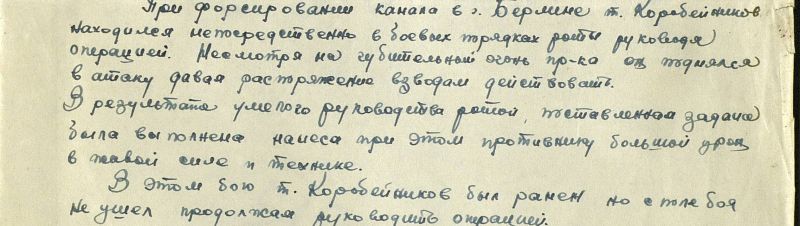 При форсировании канала в г. Берлине т. Коробейников
находился непосредственно в боевых порядках роты руководя
операцией. Несмотря на губительный огонь пр-ка он поднялся
в атаку давая распряжение взводам действовать.
В результате умелого руководства ротой, поставленная задача
была выполнена нанеся при этом противнику большой урон
в живой силе и технике.
В этом бою т. Коробейников был ранен но с поле боя
не ушел продолжая руководить операцией.